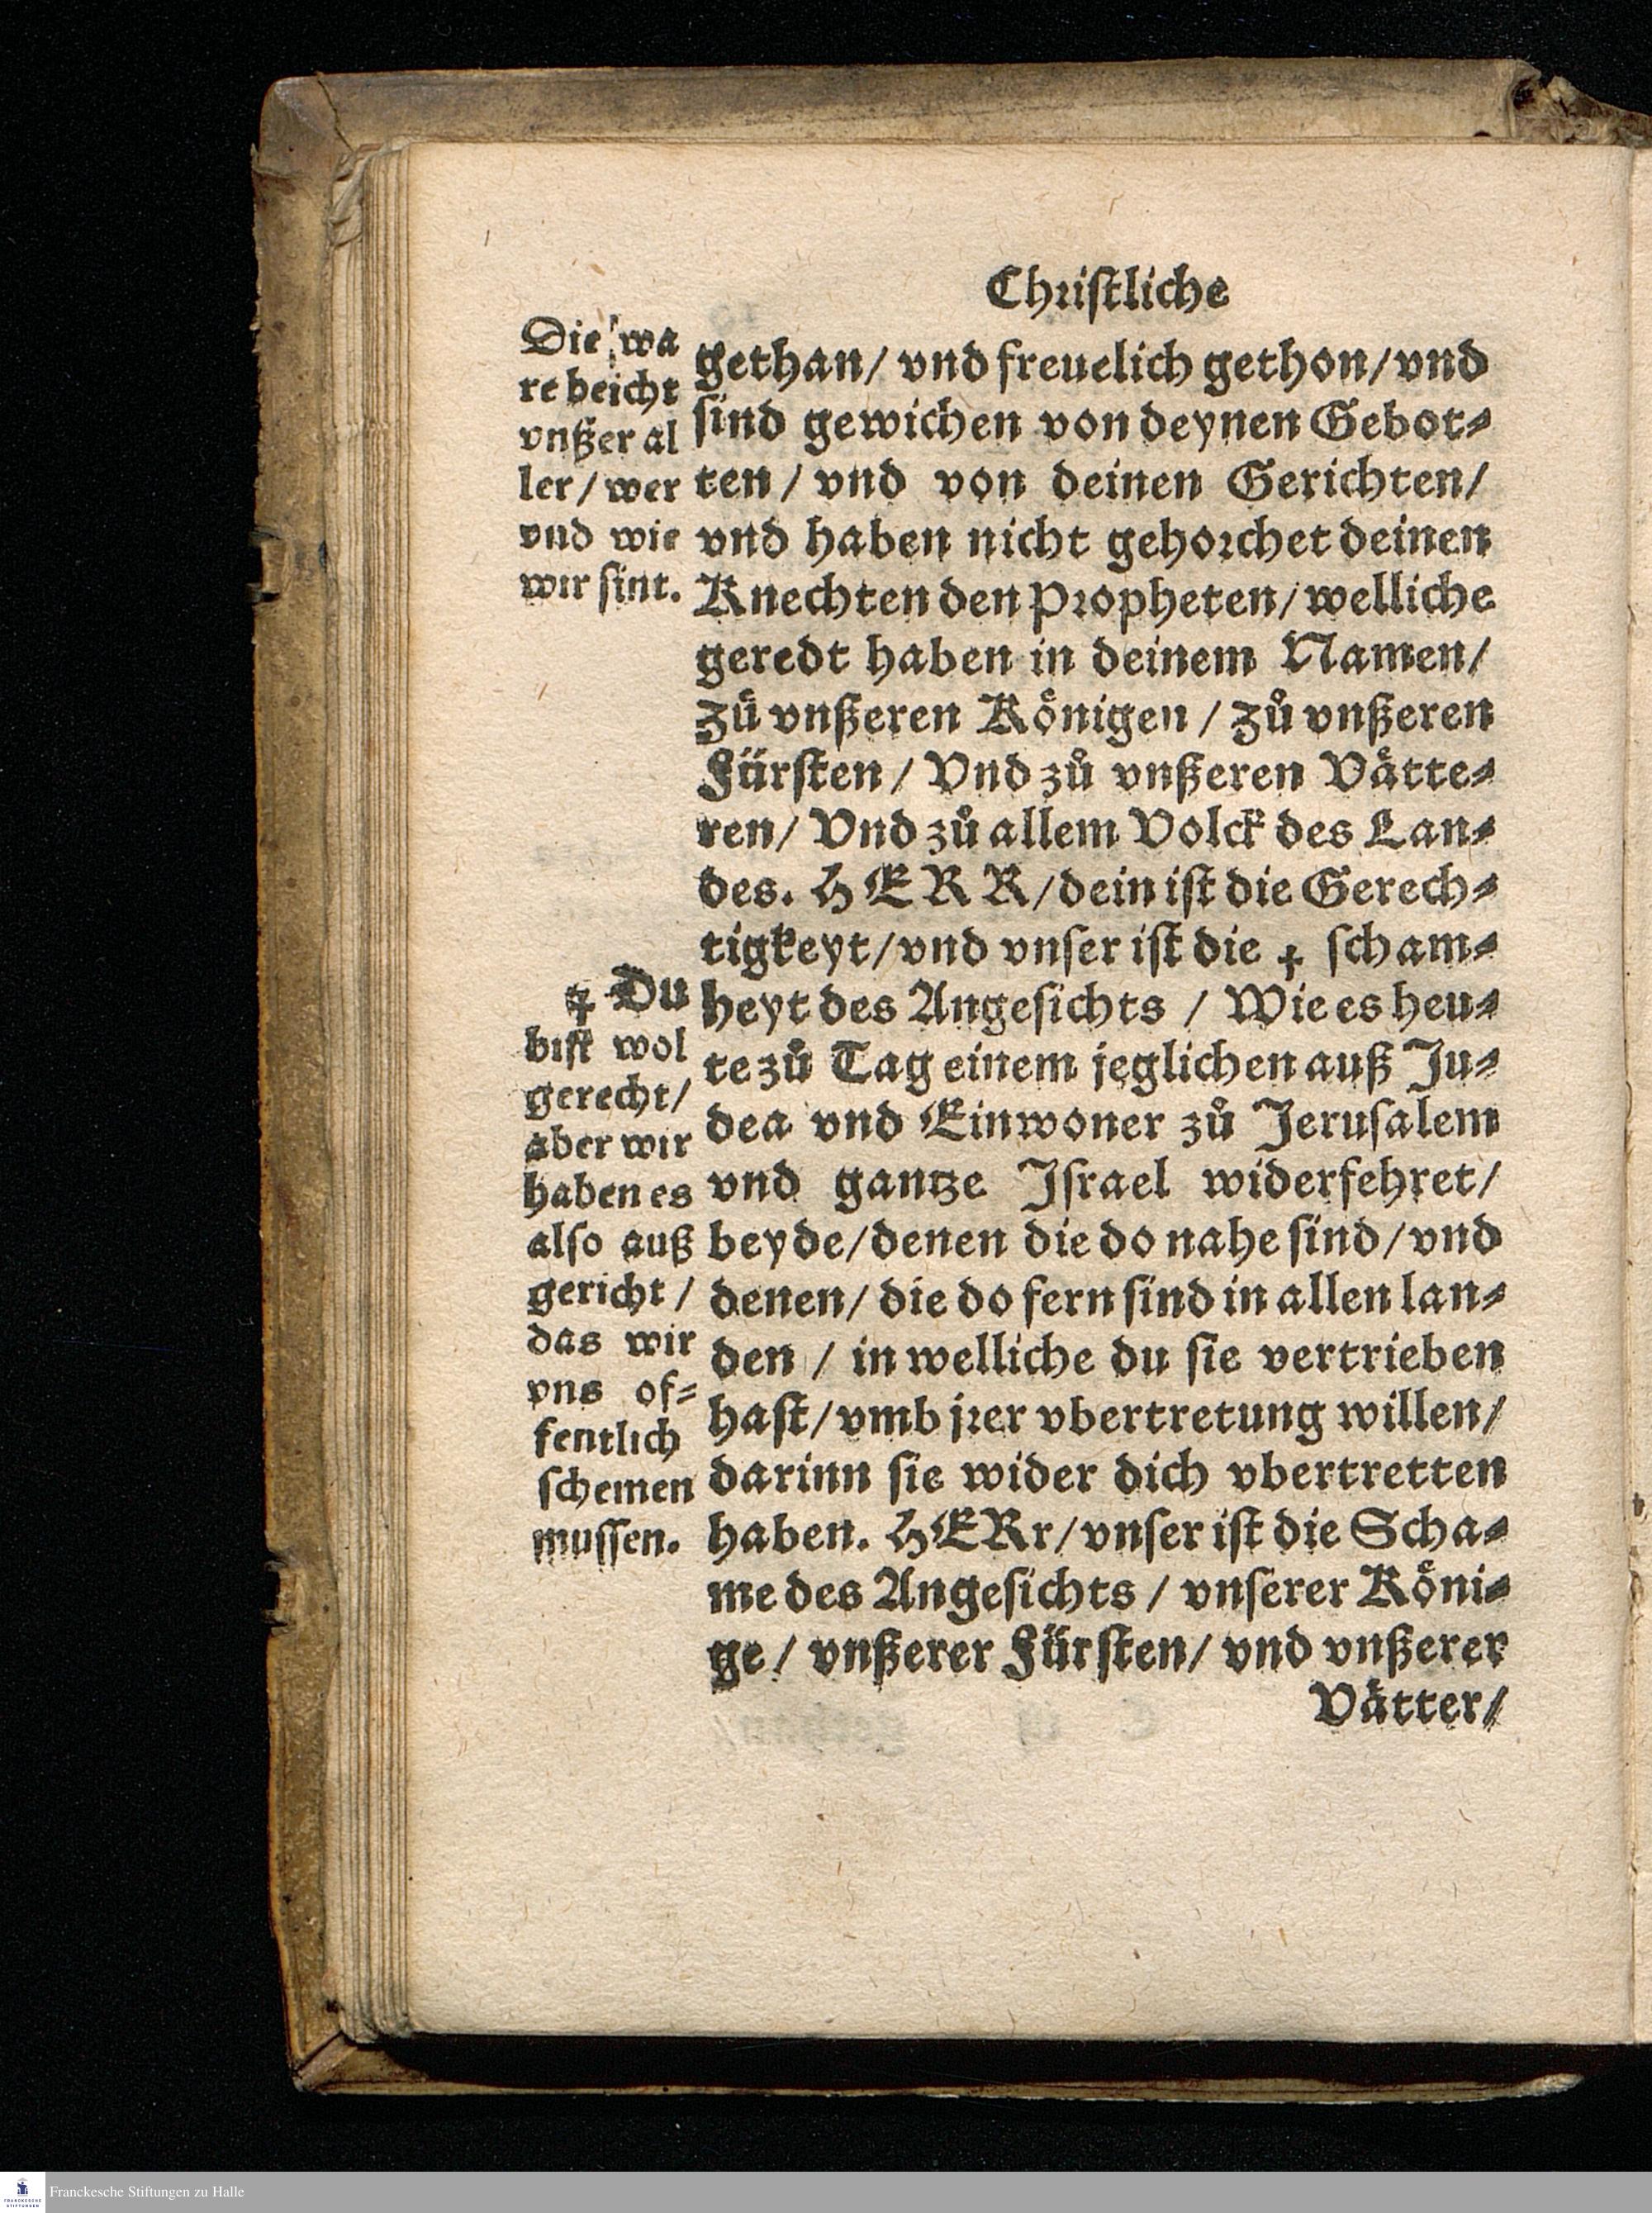 Christliche
Die wa
re beicht
vnßer al
ler / wer
vnd wie
wir sint.
gethan / vnd freuelich gethon / vnd
sind gewichen von deynen Gebot⸗
ten / vnd von deinen Gerichten /
vnd haben nicht gehorchet deinen
Knechten den Propheten / welliche
geredt haben in deinem Namen /
Zů vnßeren Koͤnigen / Zů vnßeren
Fürsten / Vnd zů vnßeren Vaͤtte⸗
ren / Vnd zů allem Volck des Lan⸗
des. HERR / dein ist die Gerech⸗
tigkeyt / vnd vnser ist die ✝ scham⸗
heyt des Angesichts / Wie es heu⸗
te zů Tag einem jeglichen auß Ju⸗
dea vnd Einwoner zů Jerusalem
vnd gantze Israel widerfehret /
beyde / denen die do nahe sind / vnd
denen / die do fern sind in allen lan⸗
den / in welliche du sie vertrieben
hast / vmb jrer vbertretung willen /
darinn sie wider dich vbertretten
haben. HERr / vnser ist die Scha⸗
me des Angesichts / vnserer Koͤni⸗
ge / vnßerer Fürsten / vnd vnßerer
Vaͤtter /
✝ Du
bist wol
gerecht /
aber wir
haben es
also auß
gericht /
das wir
vns of⸗
fentlich
schemen
mussen.
FRANCKESCHE STIFTUNGEN
Franckesche Stiftungen zu Halle